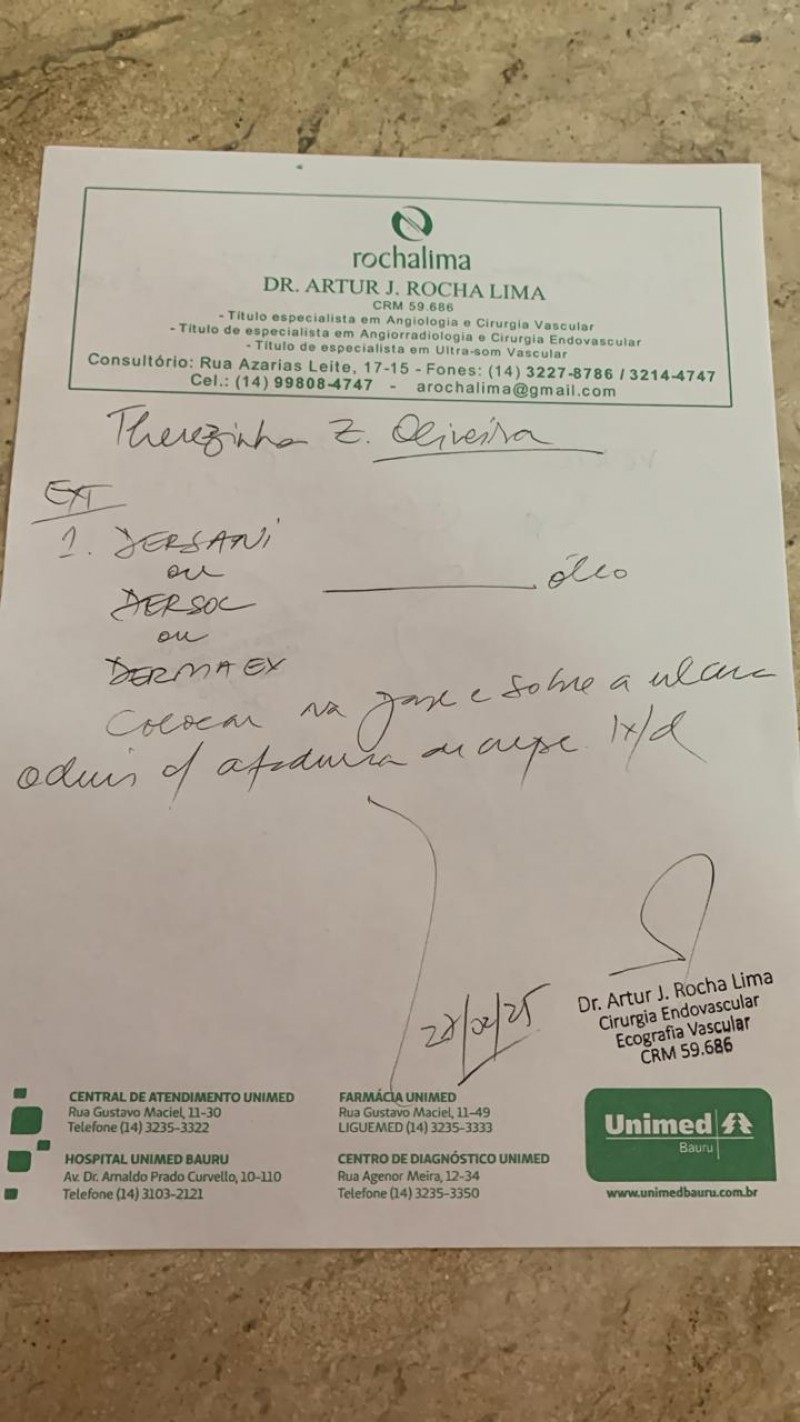 rochalima
DR. ARTUR J. ROCHA LIMA
CRM 59.686
- Título especialista em Angiologia e Cirurgia Vascular
- Título de especialista em Angiorradiologia e Cirurgia Endovascular
- Título de especialista em Ultra-som Vascular
Consultório: Rua Azarias Leite, 17-15 - Fones: (14) 3227-8786 / 3214-4747
Cel.: (14) 99808-4747 - arochalima@gmail.com
Therezinha Z. Oliveira
EXT
1. DERSANI
ou
DERSOL óleo
ou
DERMAEX
Colocar na gaze e sobre a
c/ atadura de crepe 1x/d
Dr. Artur J. Rocha Lima
Cirurgia Endovascular
Ecografia Vascular
CRM 59.686
CENTRAL DE ATENDIMENTO UNIMED
Rua Gustavo Maciel, 11-30
Telefone (14) 3235-3322
HOSPITAL UNIMED BAURU
Av. Dr. Arnaldo Prado Curvello, 10-110
Telefone (14) 3103-2121
FARMÁCIA UNIMED
Rua Gustavo Maciel, 11-49
LIGUEMED (14) 3235-3333
CENTRO DE DIAGNÓSTICO UNIMED
Rua Agenor Meira, 12-34
Telefone (14) 3235-3350
Unimed
Bauru
www.unimedbauru.com.br